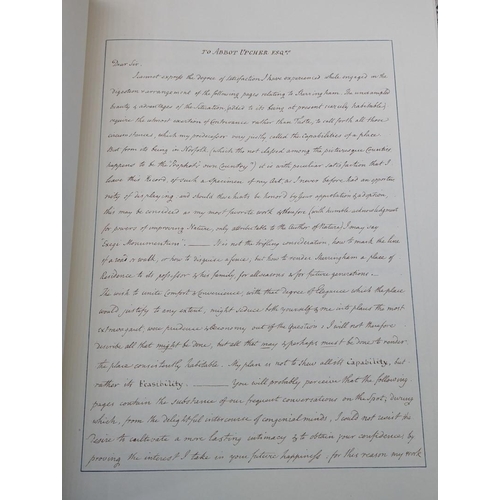 TO ABBOT UPCHER ESQ.re
Dear Sir.
I cannot express the degree of satisfaction I have experienced while engaged in the
digestion & arrangement of the following pages relating to Sheringham. The unexampled
beauty & advantages of the Situation added to its being at present scarcely habitable,
requires the utmost exertion of Contrivance rather than Taste, to call forth all those
circumstances which my predecessor very justly called the Capabilities of a place.
But from its being in Norfolk (which tho' not classed among the picturesque Counties
happens to be the "Prophet's own Country") it is with peculiar satisfaction that I
leave this Record, of such a Specimen of my Art, as I never before had an opportu
nity of displaying. and should these hints be honor'd by your approbation & adoption,
this may be considered as my most favorite work & therefore (with humble acknowledgment
for powers of improving Nature, only attributable to the Author of Nature) I may say
"Exegi Monumentum". It is not the trifling consideration, how to mark the line
of a road or walk, or how to disguise a fence, but how to render Sherringham a place of
Residence to its possessor & his family, for all seasons & for future generations
The wish to unite Comfort & Convenience, with that degree of Elegance which the place
would justify to any extent, might seduce both yourself & me into plans the most
extravagant, were prudence & economy out of the question: I will not therefore
describe all that might be done, but all that may & perhaps must be done to render
the place consistently habitable. My plan is not to shew all its capability, but
rather its Feasibility. You will probably perceive that the following
pages contain the substance of our frequent conversations on the Spot; during
which, from the delightful intercourse of congenial minds, I could not resist the
desire to cultivate a more lasting intimacy & to obtain your confidence by
proving the interest I take in your future happiness: for this reason my work